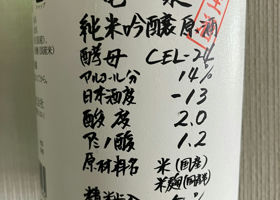 純米吟醸原酒
酵母 CEL-24
アルコール分 14%
日本酒度 -13
酸度 2.0
アミノ酸 1.2
原材料名 米(国産)
米麹(国産米)